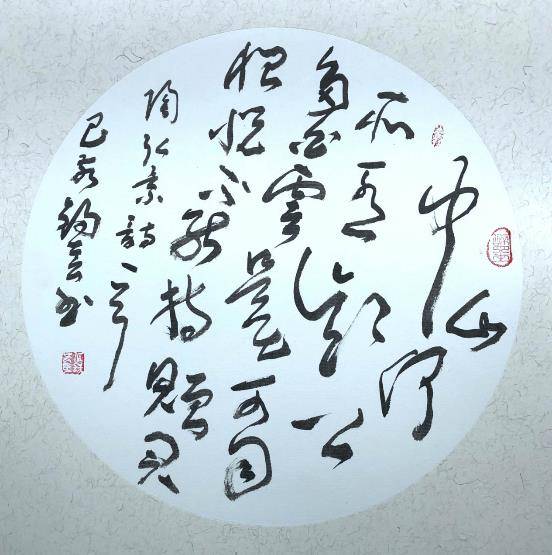 中山何
所有嶺上
多白雲只可自
怡悦不堪持贈君
陶弘景詩一首
己亥
书